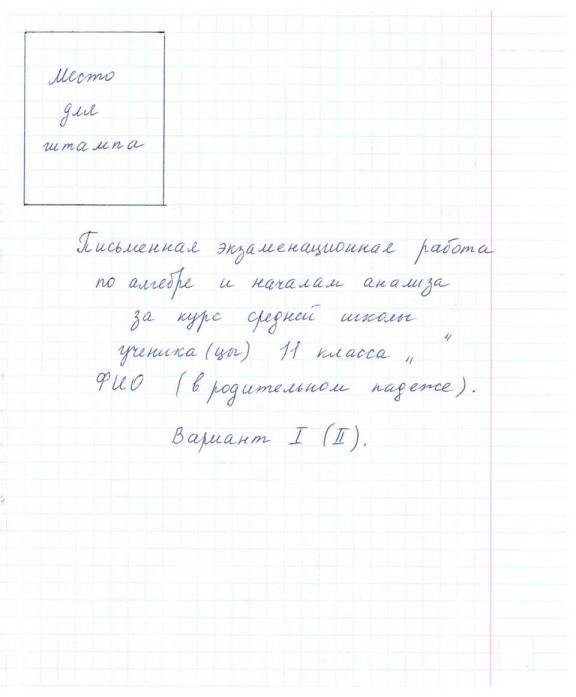 Место
для
штампа
Письменная экзаменационная работа
по алгебре и началам анализа
за курс средней школы
ученика (цы) 11 класса „ “
ФИО (в родительном падеже).
Вариант I (II).